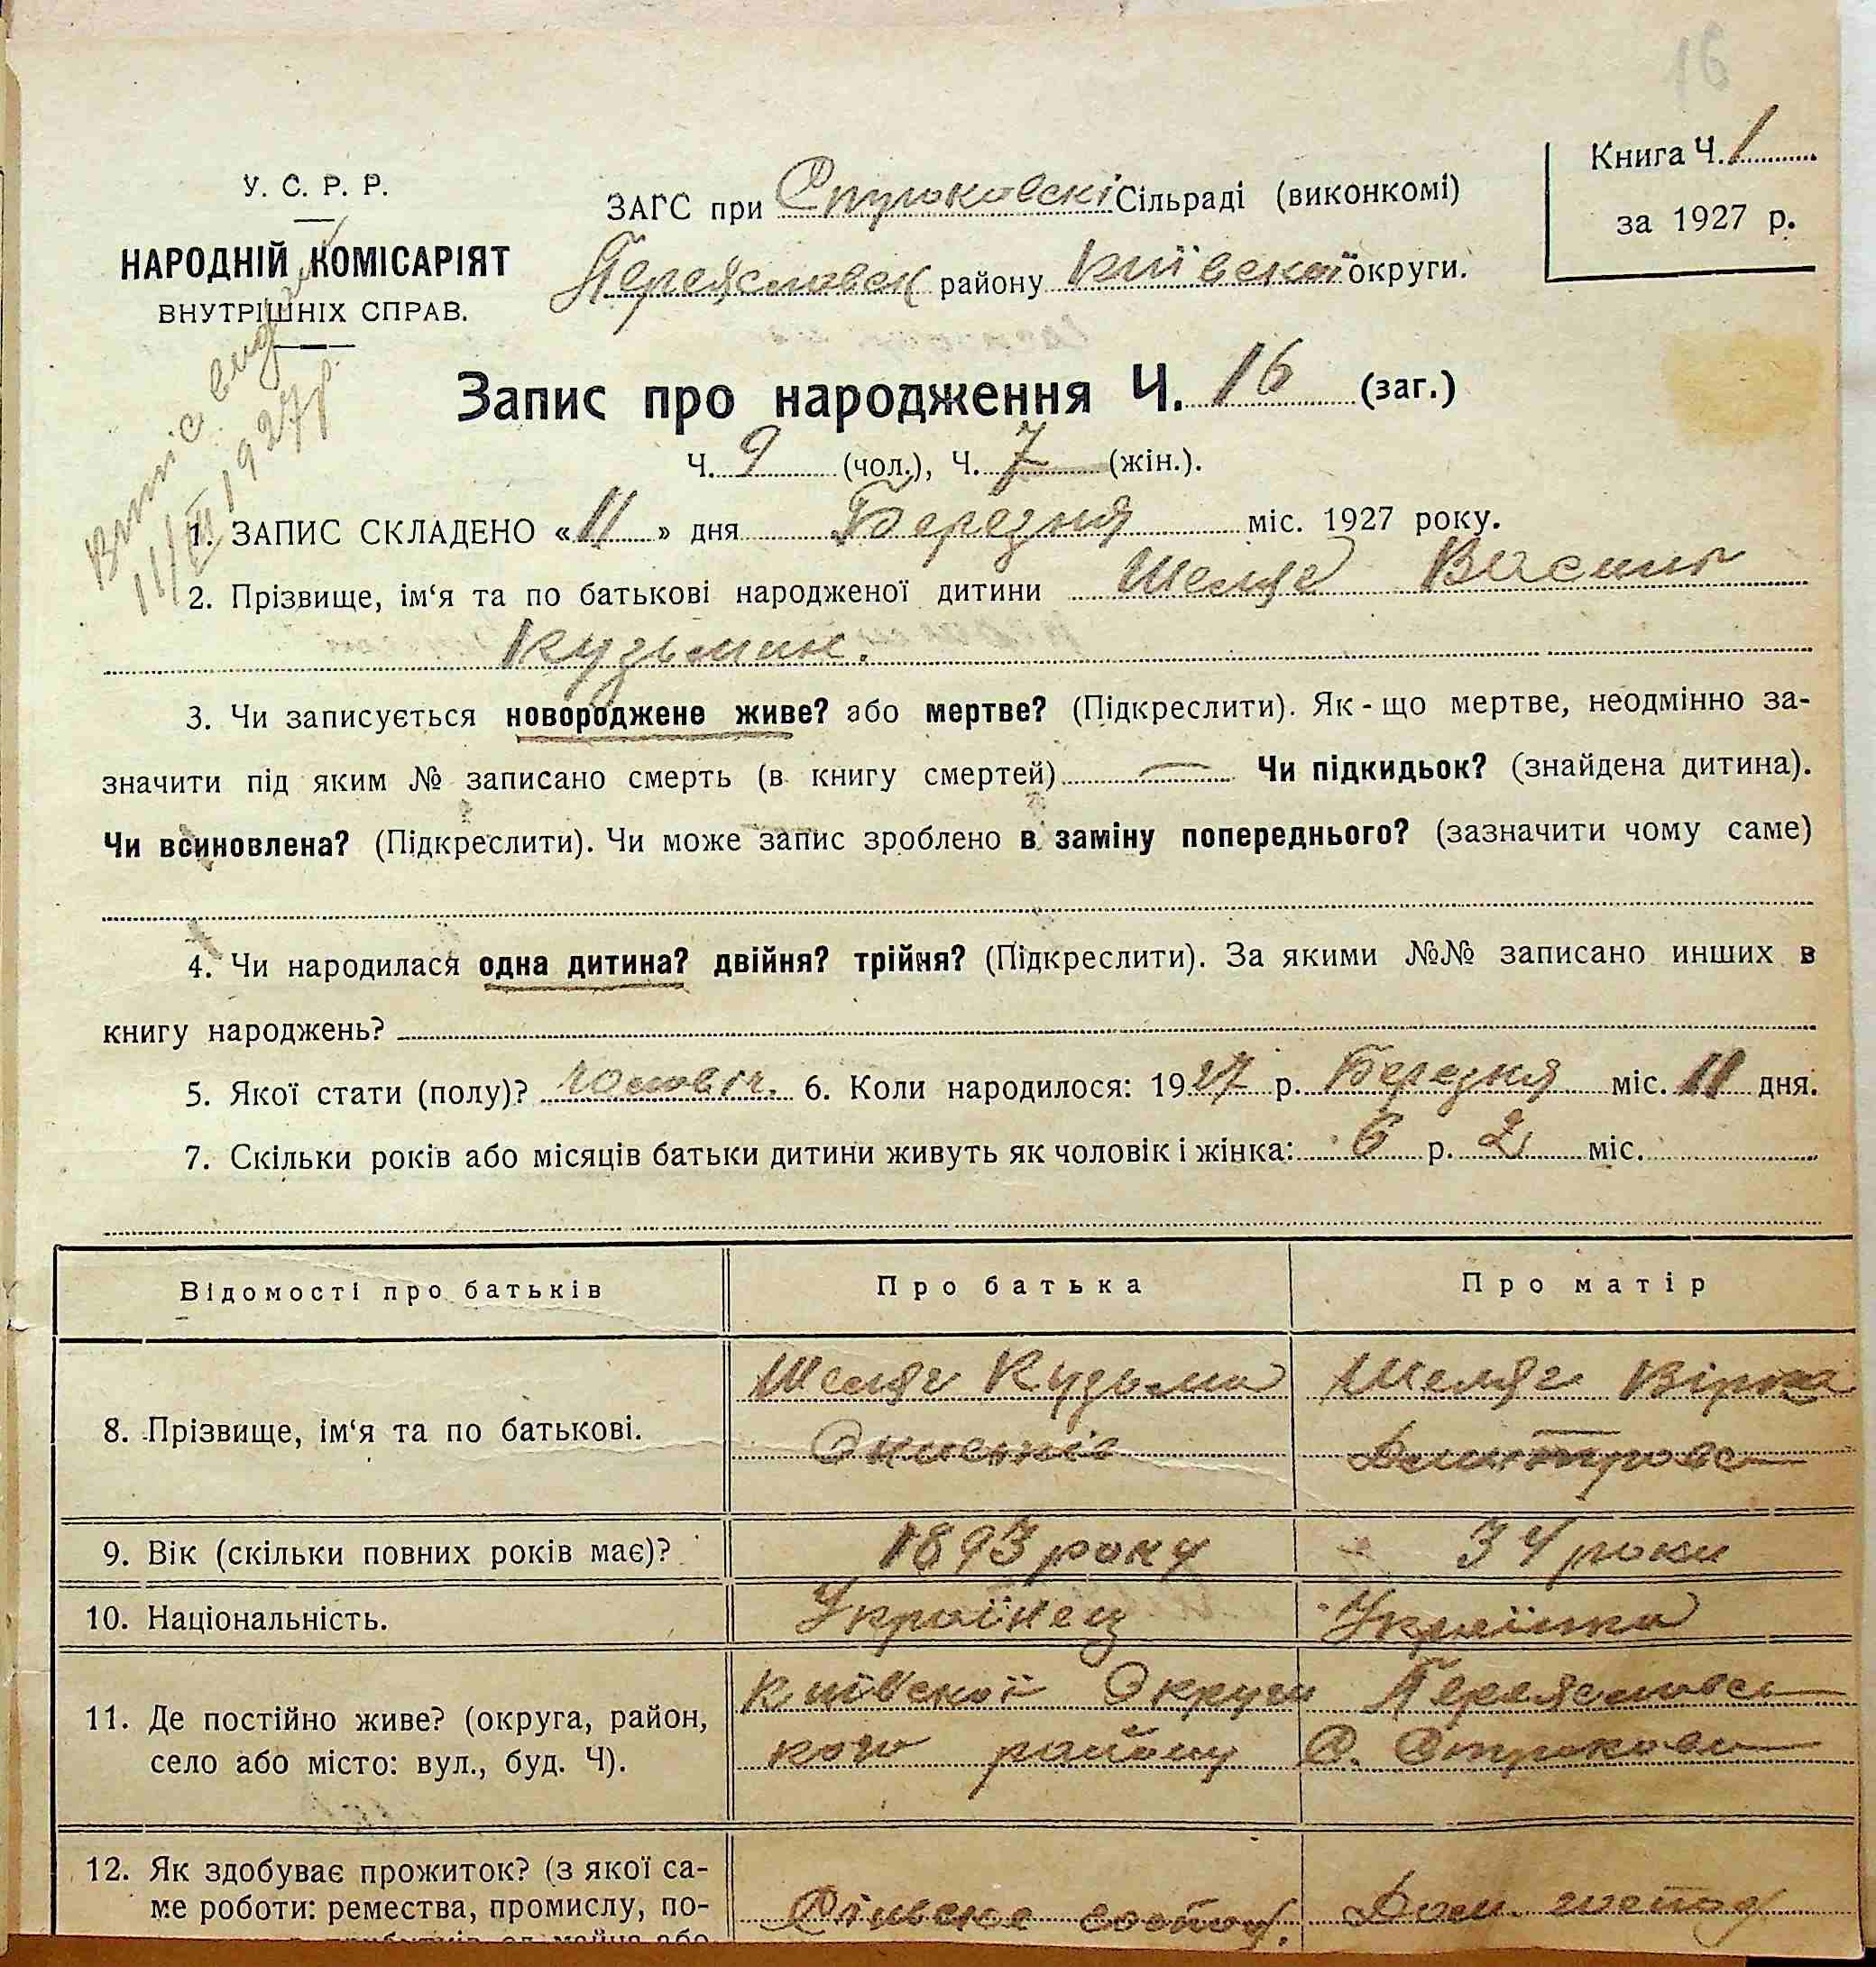 16
У. С. Р. Р.
НАРОДНІЙ КОМІСАРІЯТ
ВНУТРІШНІХ СПРАВ.
ЗАГС при Сільраді (виконкомі)
району Київської округи.
Книга Ч. 1
за 1927 р.
11/III 1927 р.
Запис про народження Ч. 16 (заг.)
Ч. 9 (чол.), Ч. 7 (жін.).
1. ЗАПИС СКЛАДЕНО « 11 » дня Березня міс. 1927 року.
2. Прізвище, ім‘я та по батькові народженої дитини Василь
Кузьмич.
3. Чи записується новороджене живе? або мертве? (Підкреслити). Як - що мертве, неодмінно за-
значити під яким № записано смерть (в книгу смертей) — Чи підкидьок? (знайдена дитина).
Чи всиновлена? (Підкреслити). Чи може запис зроблено в заміну попереднього? (зазначити чому саме)
4. Чи народилася одна дитина? двійня? трійня? (Підкреслити). За якими №№ записано инших в
книгу народжень?
5. Якої стати (полу)? 6. Коли народилося: 1927 р. Березня міс. 11 дня.
7. Скільки років або місяців батьки дитини живуть як чоловік і жінка: 6 р. 2 міс.
Відомості про батьків Про батька Про матір
8. Прізвище, ім‘я та по батькові. Кузьма
9. Вік (скільки повних років має)? 1893 року 34 роки
10. Національність. Українец Українка
11. Де постійно живе? (округа, район, Київської Округи Переяславсь
село або місто: вул., буд. Ч). кого району С.
12. Як здобуває прожиток? (з якої са-
ме роботи: ремества, промислу, по- Дом. господ.